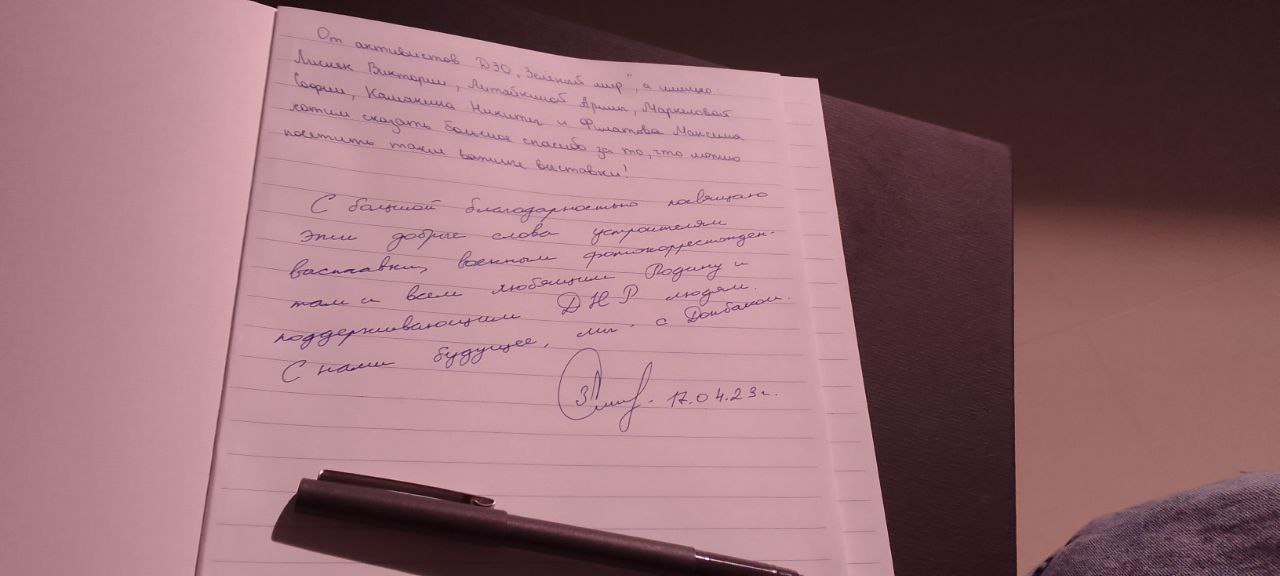 От активистов ДЭО „Зелёный мир", а именно:
Лисняк Виктории, Литяйкиной Арины, Маркеловой
Софии, Камакина Никиты и Филатова Максима
хотим сказать большое спасибо за то, что можно
посетить такие важные выставки!
С большой благодарностью посвящаю
эти добрые слова устроителям
выставки, военным фотокорреспонден-
там и всем любящим Родину и
поддерживающим ДНР людям.
С нами будущее, мы - с Донбасом.
17.04.23г.